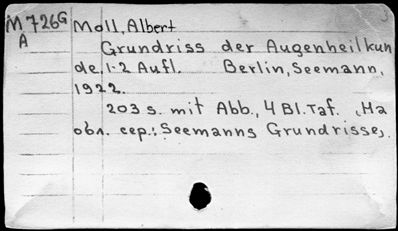 M726G Moll, Albert
A
Grundriss der Augenheilkun
de. 1-2 Aufl. Berlin, Seemann,
1922.
203 s. mit Abb., 4 Bl. Taf. (На
обл. сер.: Seemanns Grundrisse).